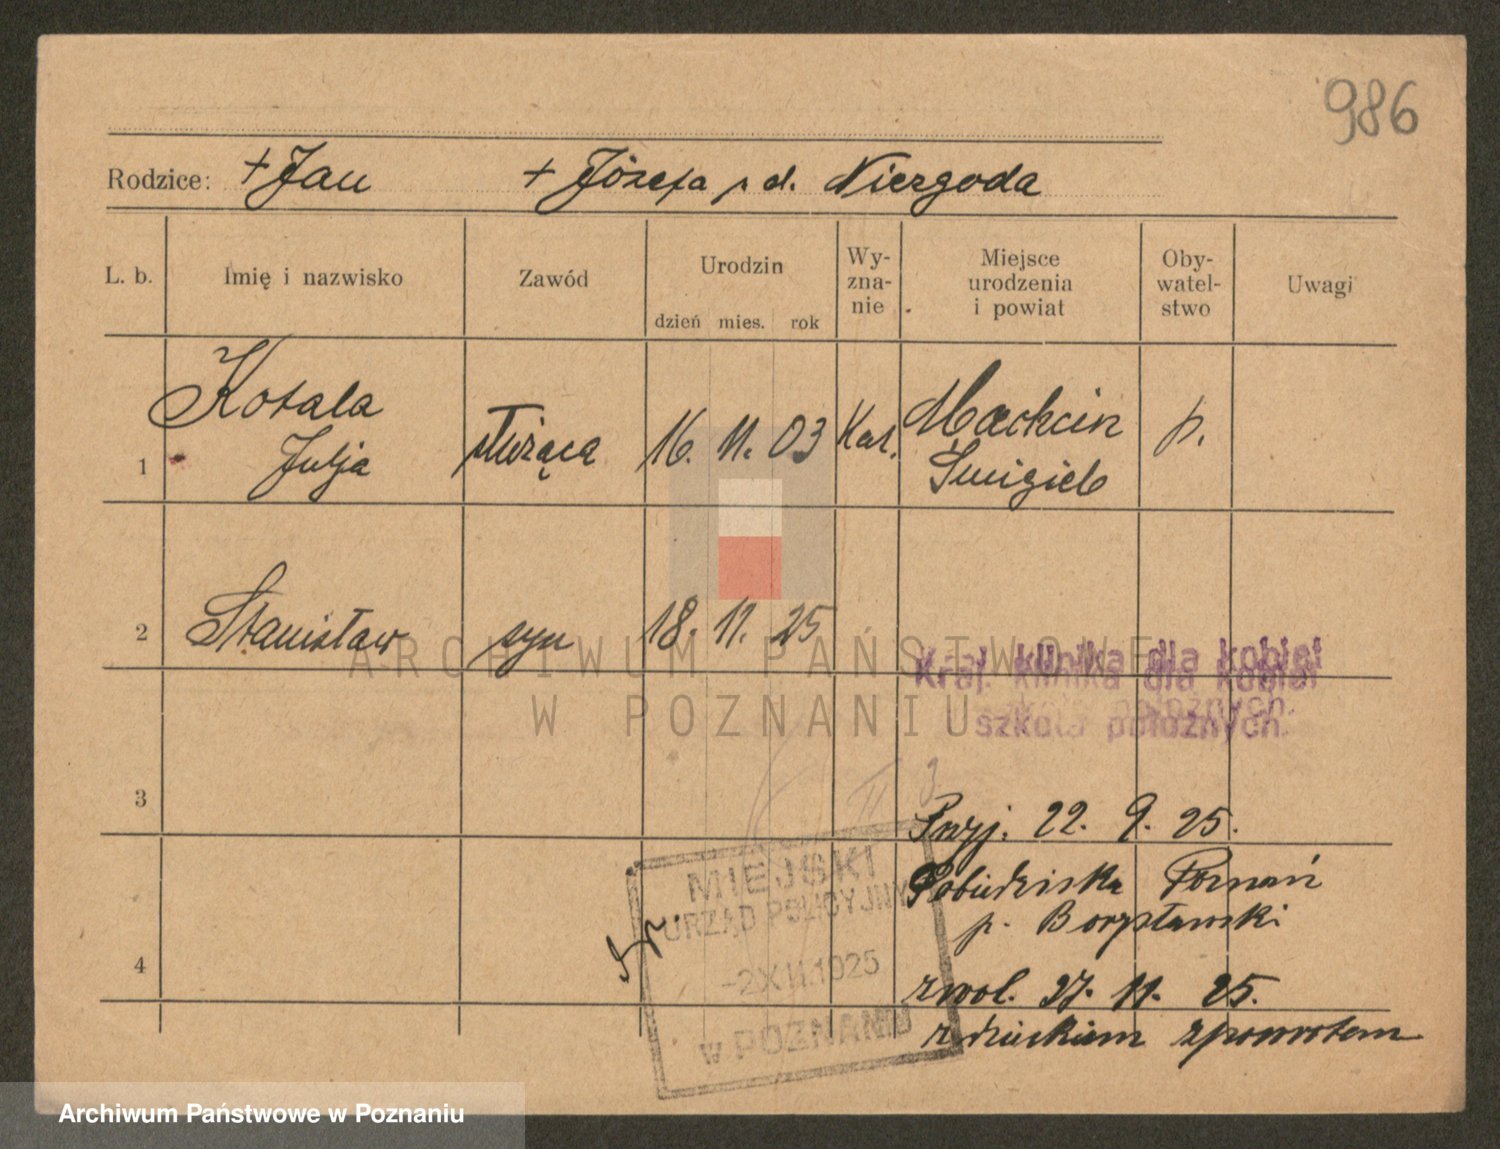 986
Rodzice: + Jan + Józefa p d. Niezgoda
L. b. Imię i nazwisko Zawód Urodzin dzień mies. rok Wy-zna-nie Miejsce urodzenia i powiat Oby-watel-stwo Uwagi
Kotala
1 Julja służąca 16. 11. 03 Kat. Machcin p.
Śmigiel
2 Stanisław syn 18. 11. 25
Kraj. klinika dla kobiet
szkoła położnych.
3
Przyj. 22. 9. 25.
Pobiedziska Poznań
p. Borysławski
4
zwol. 27. 11. 25.
z dzieckiem zpowrotem
MIEJSKI
URZĄD POLICYJNY
-2 XII.1925
w POZNANIU
ARCHIWUM PAŃSTWOWE
W POZNANIU
Archiwum Państwowe w Poznaniu